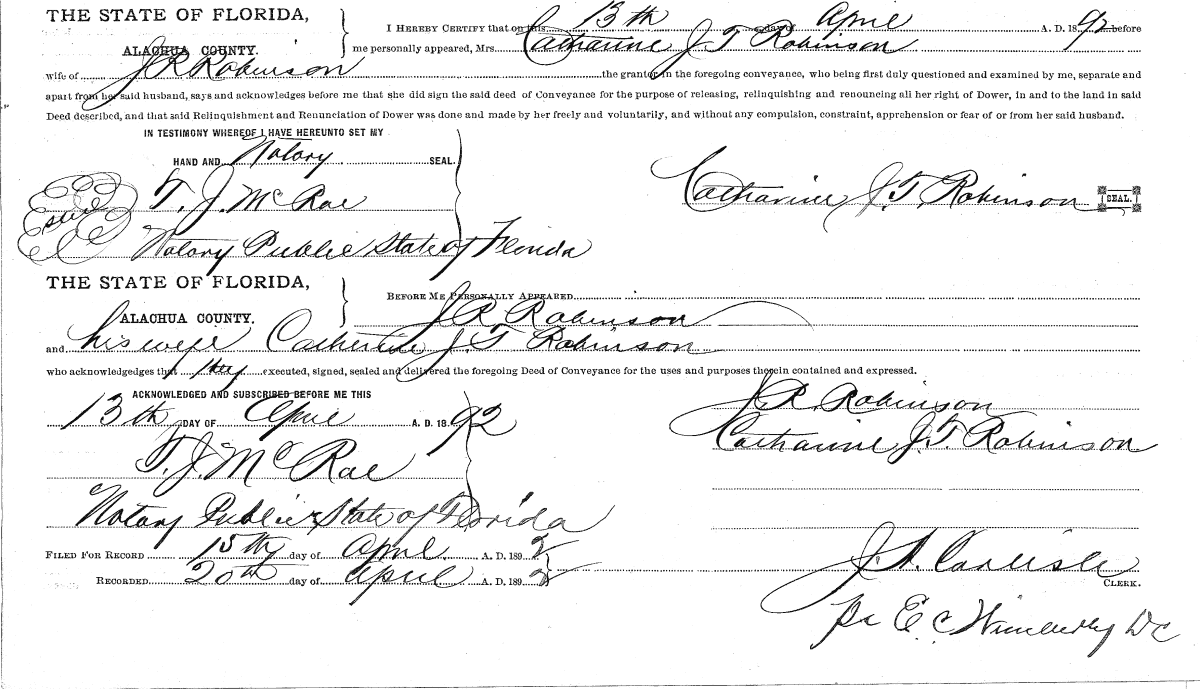 THE STATE OF FLORIDA,
ALACHUA COUNTY.
I HEREBY CERTIFY that on this 13th day of April A. D. 1892 before
me personally appeared, Mrs. Catharine J. T. Robinson
wife of J R Robinson the grantor in the foregoing conveyance, who being first duly questioned and examined by me, separate and
apart from her said husband, says and acknowledges before me that she did sign the said deed of Conveyance for the purpose of releasing, relinquishing and renouncing all her right of Dower, in and to the land in said
Deed described, and that said Relinquishment and Renunciation of Dower was done and made by her freely and voluntarily, and without any compulsion, constraint, apprehension or fear of or from her said husband.
IN TESTIMONY WHEREOF I HAVE HEREUNTO SET MY
HAND AND Notary SEAL.
Seal T. J. McRae
Catharine J. T. Robinson SEAL.
Notary Public State of Florida
THE STATE OF FLORIDA,
ALACHUA COUNTY.
BEFORE ME PERSONALLY APPEARED
J R Robinson
and his wife Catherine J. T Robinson
who acknowledgedges that they executed, signed, sealed and delivered the foregoing Deed of Conveyance for the uses and purposes therein contained and expressed.
ACKNOWLEDGED AND SUBSCRIBED BEFORE ME THIS
13th DAY OF April A. D. 1892
T. J. McRae
Notary Public State of Florida
J. R. Robinson
Catharine J. T. Robinson
FILED FOR RECORD 15th day of April A. D. 1892
RECORDED 20th day of April A. D. 1892
J. A. Carlisle
CLERK.
Pr E. C Wimberly DC